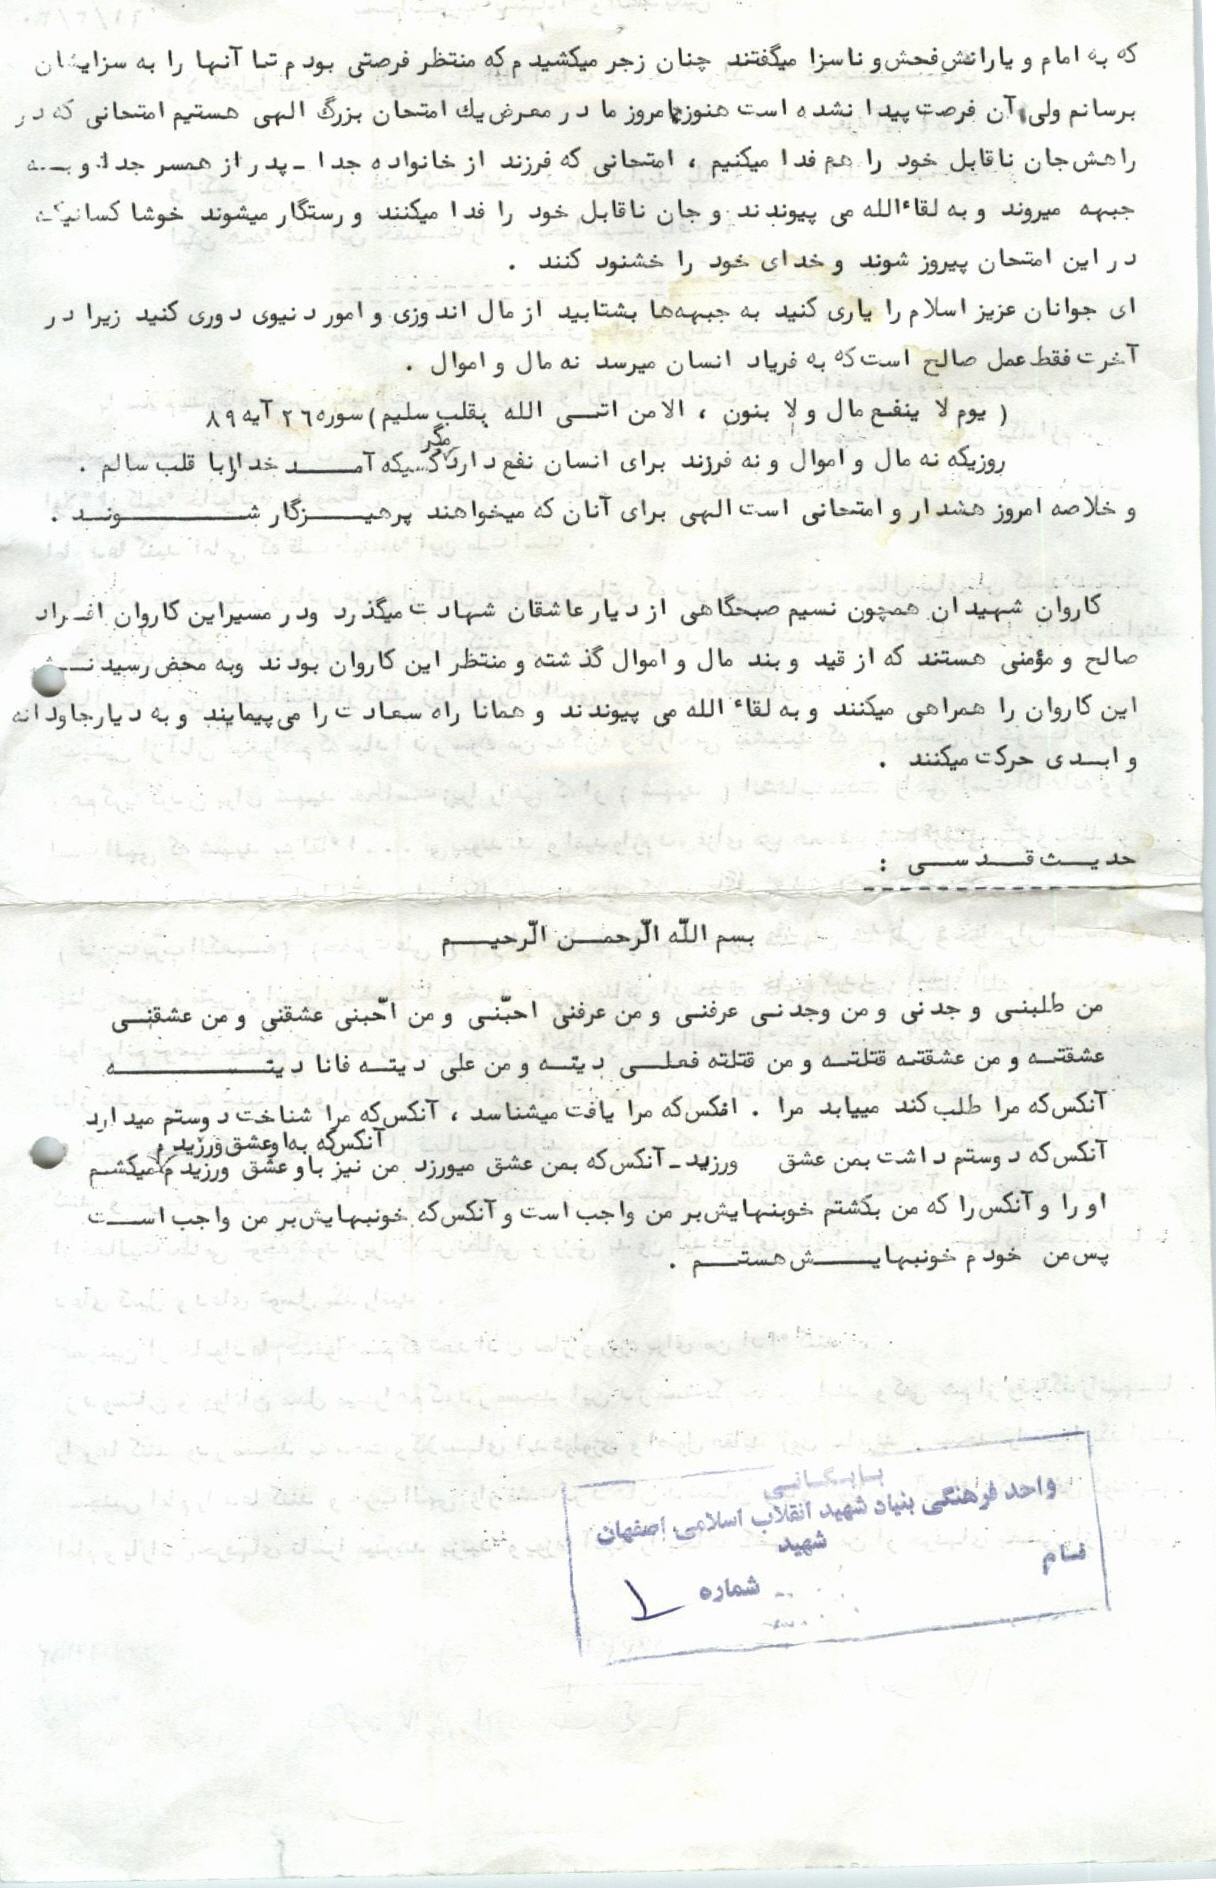 که به امام و یارانش فحش و ناسزا میگفتند چنان زجر میکشیدم که منتظر فرصتی بودم تا آنها را به سزایشان
برسانم ولی آن فرصت پیدا نشده است هنوز امروز ما در معرض یك امتحان بزرگ الهی هستیم امتحانی که در
راهش جان ناقابل خود را هم فدا میکنیم ، امتحانی که فرزند از خانواده جدا ـ پدر از همسر جدا و بـه
جبهه میروند و به لقاءالله می پیوندند و جان ناقابل خود را فدا میکنند و رستگار میشوند خوشا کسانیکه
در این امتحان پیروز شوند و خدای خود را خشنود کنند .
ای جوانان عزیز اسلام را یاری کنید به جبهه‌ها بشتابید از مال اندوزی و امور دنیوی دوری کنید زیرا در
آخرت فقط عمل صالح است که به فریاد انسان میرسد نه مال و اموال .
( یوم لا ینفـع مال و لا بنون ، الا من اتـی الله بقلب سلیم ) سوره ۲٦ آیه ۸۹
روزیکه نه مال و اموال و نه فرزند برای انسان نفع دارد مگر کسیکه آمـد خدا را با قلب سالم .
و خلاصه امروز هشدار و امتحانی است الهی برای آنان که میخواهند پرهیـزگار شـونـد .
کاروان شهیدان همچون نسیم صبحگاهی از دیار عاشقان شهادت میگذرد و در مسیر این کاروان افـراد
صالح و مؤمنی هستند که از قید و بند مال و اموال گذشته و منتظر این کاروان بودند و به محض رسیدنـش
این کاروان را همراهی میکنند و به لقاء الله می پیوندند و همانا راه سعادت را می‌پیمایند و به دیار جاودانه
و ابـدی حرکت میکنند .
حدیـث قـدسـی :
بسم اللّه الّرحمـن الّرحیـم
من طلبنـی وجدنی و من وجدنـی عرفنـی و من عرفنی احبّنـی و من احّبنی عشقنی و من عشقنـی
عشقتـه و من عشقتـه قتلتـه و من قتلته فعلـی دیتـه و من علی دیتـه فانا دیتـه
آنکس که مرا طلب کند مییابد مرا . افکس که مرا یافت میشناسد ، آنکس که مرا شناخت دوستم میدارد
آنکس که دوستم داشت بمن عشق ورزید ـ آنکس که بمن عشق میورزد من نیز باو عشق ورزیدم آنکس که به او عشق ورزیدم میکشـم
او را و آنکس را که من بکشتم خوبنهایش بر من واجب است و آنکس که خونبهایش بر من واجب اسـت
پس من خودم خونبهایـش هستـم .
بایگـانـی
واحد فرهنگی بنیاد شهید انقلاب اسلامی اصفهان
شهید
نـام
شماره ۱